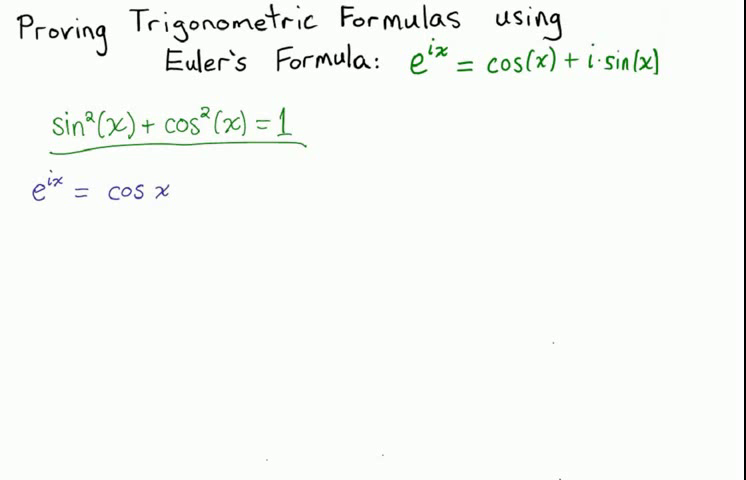 Proving Trigonometric Formulas using
Euler's Formula: e^{ix} = cos(x) + i·sin(x)
sin²(x) + cos²(x) = 1
e^{ix} = cos x